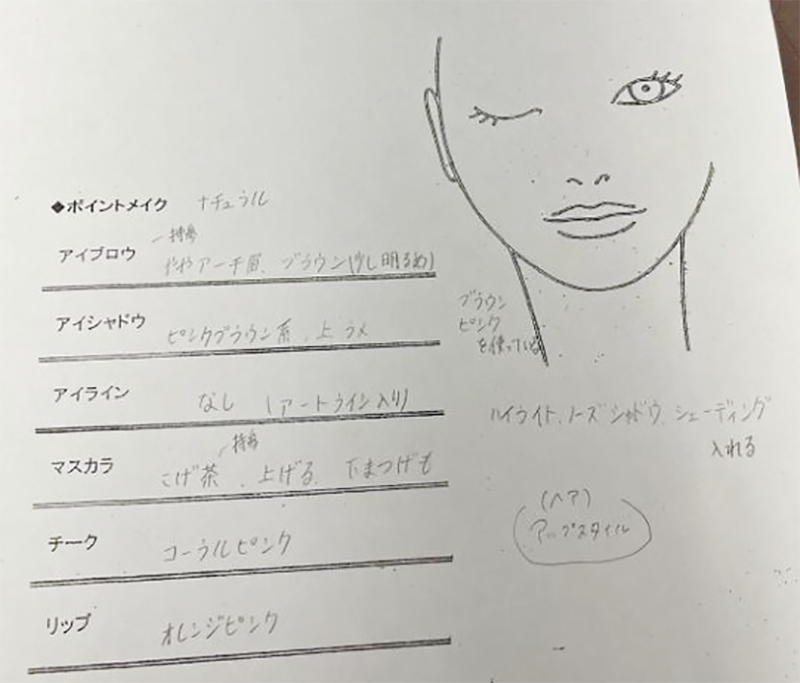 ◆ポイントメイク ナチュラル
アイブロウ
持参
ややアーチ眉、ブラウン(少し明るめ)
アイシャドウ
ピンクブラウン系、上ラメ
ブラウン
ピンク
を使っている
アイライン
なし (アートライン入り)
マスカラ
持参
こげ茶、上げる、下まつげも
チーク
コーラルピンク
リップ
オレンジピンク
ハイライト、ノーズシャドウ、シェーディング
入れる
(ヘア)
アップスタイル